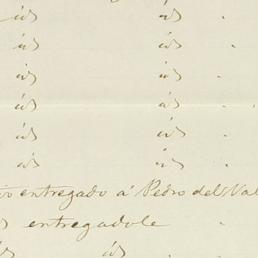 id id
id id .
id id
id id .
id id
id id .
entregado a' Pedro del Val
entregadole
id id .